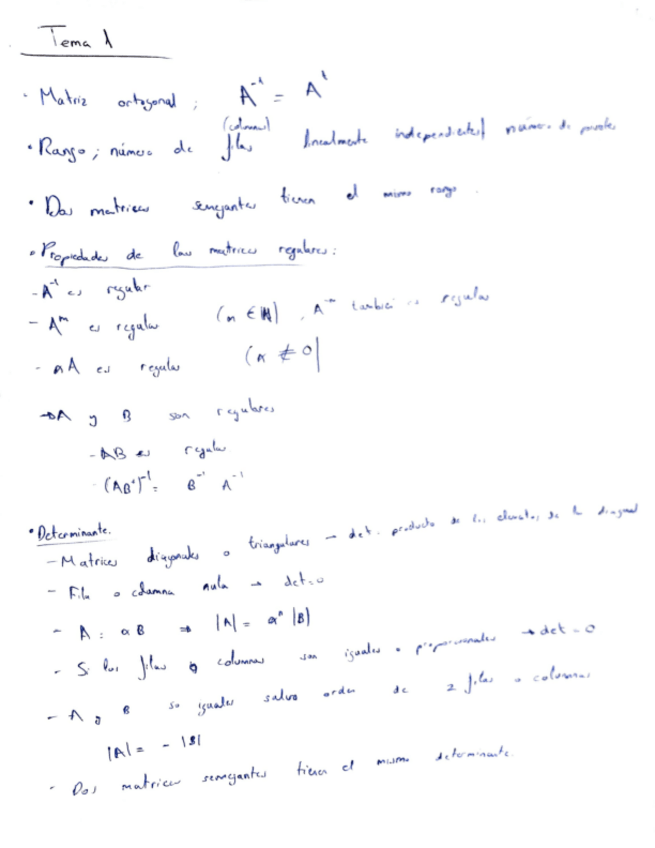 Tema 1
· Matriz ortogonal ; A⁻¹ = Aᵗ
· Rango ; número de filas (columnas) linealmente independientes / número de pivotes
· Dos matrices semejantes tienen el mismo rango .
· Propiedades de las matrices regulares :
- A⁻¹ es regular
- Aᵐ es regular (m ∈ ℕ) , A⁻ᵐ también es regular
- αA es regular (α ≠ 0)
→ A y B son regulares
- AB es regular
· (AB)⁻¹ = B⁻¹ A⁻¹
· Determinante.
- Matrices diagonales o triangulares → det. producto de los elementos de la diagonal
- Fila o columna nula → det = 0
- A = αB ⇒ |A| = αⁿ |B|
- Si las filas o columnas son iguales o proporcionales → det = 0
- A y B so iguales salvo orden de 2 filas o columnas
|A| = - |B|
- Dos matrices semejantes tienen el mismo determinante.